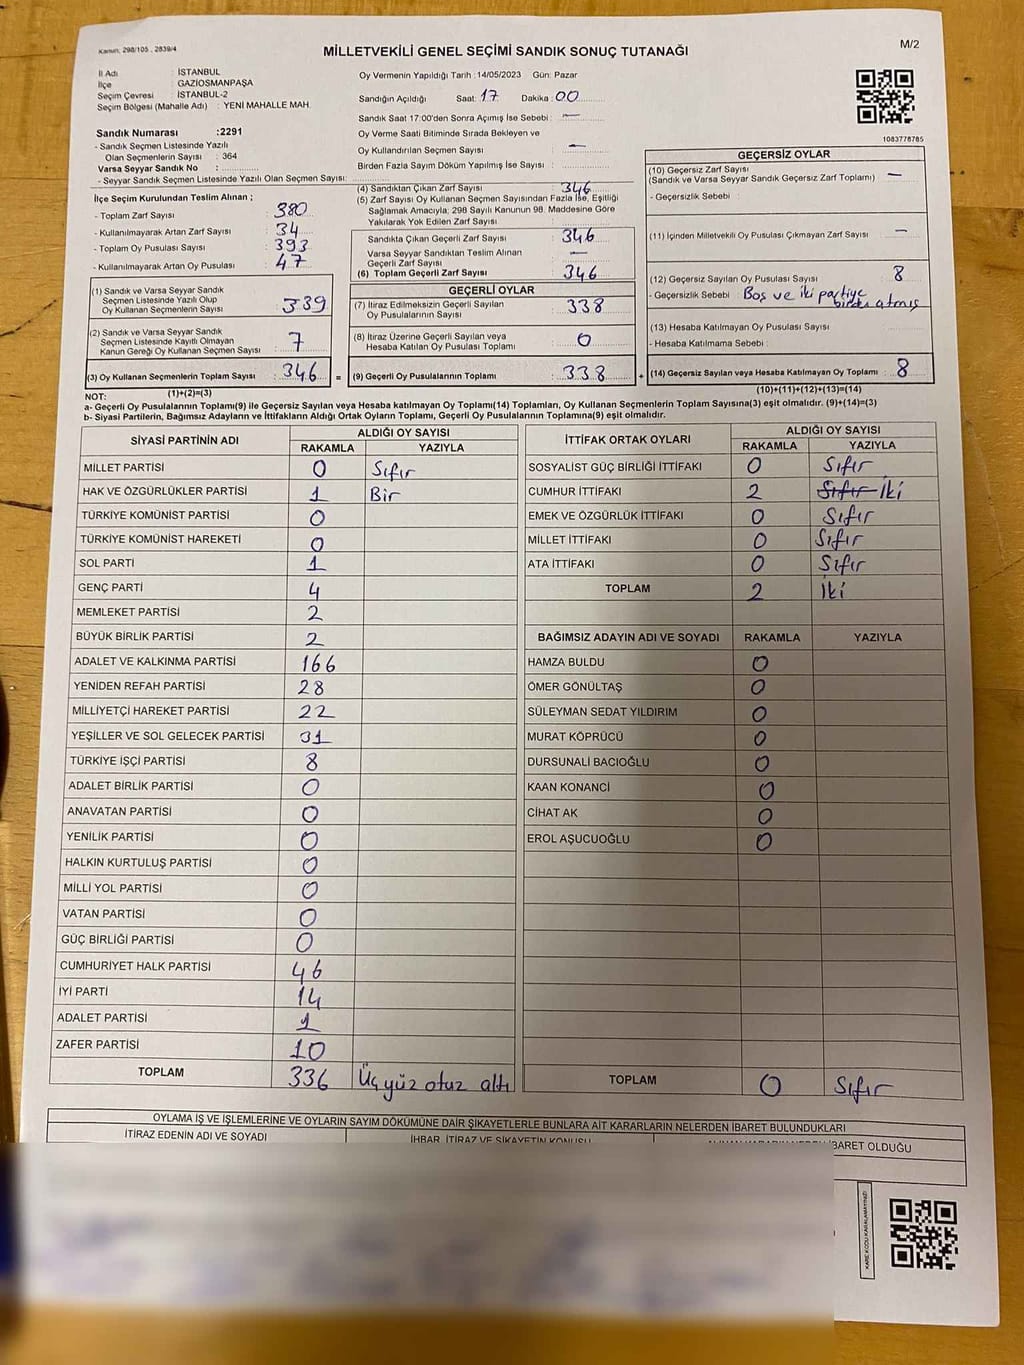 Kanun: 298/105 , 2839/4
MİLLETVEKİLİ GENEL SEÇİMİ SANDIK SONUÇ TUTANAĞI
M/2
İl Adı : İSTANBUL
İlçe : GAZİOSMANPAŞA
Seçim Çevresi : İSTANBUL-2
Seçim Bölgesi (Mahalle Adı) : YENİ MAHALLE MAH.
Sandık Numarası :2291
- Sandık Seçmen Listesinde Yazılı
Olan Seçmenlerin Sayısı : 364
Varsa Seyyar Sandık No :
- Seyyar Sandık Seçmen Listesinde Yazılı Olan Seçmen Sayısı:
Oy Vermenin Yapıldığı Tarih :14/05/2023 Gün: Pazar
Sandığın Açıldığı Saat: 17 Dakika :00
Sandık Saat 17:00'den Sonra Açımış İse Sebebi : —
Oy Verme Saati Bitiminde Sırada Bekleyen ve
Oy Kullandırılan Seçmen Sayısı : —
Birden Fazla Sayım Döküm Yapılmış İse Sayısı :
1083778785
İlçe Seçim Kurulundan Teslim Alınan ;
- Toplam Zarf Sayısı : 380
- Kullanılmayarak Artan Zarf Sayısı : 34
- Toplam Oy Pusulası Sayısı : 393
- Kullanılmayarak Artan Oy Pusulası : 47
(1) Sandık ve Varsa Seyyar Sandık
Seçmen Listesinde Yazılı Olup
Oy Kullanan Seçmenlerin Sayısı : 339
(2) Sandık ve Varsa Seyyar Sandık
Seçmen Listesinde Kayıtlı Olmayan
Kanun Gereği Oy Kullanan Seçmen Sayısı : 7
(3) Oy Kullanan Seçmenlerin Toplam Sayısı : 346
(1)+(2)=(3)
(4) Sandıktan Çıkan Zarf Sayısı : 346
(5) Zarf Sayısı Oy Kullanan Seçmen Sayısından Fazla İse, Eşitliği
Sağlamak Amacıyla; 298 Sayılı Kanunun 98. Maddesine Göre
Yakılarak Yok Edilen Zarf Sayısı :
Sandıkta Çıkan Geçerli Zarf Sayısı : 346
Varsa Seyyar Sandıktan Teslim Alınan
Geçerli Zarf Sayısı : —
(6) Toplam Geçerli Zarf Sayısı : 346
GEÇERLİ OYLAR
(7) İtiraz Edilmeksizin Geçerli Sayılan
Oy Pusulalarının Sayısı : 338
(8) İtiraz Üzerine Geçerli Sayılan veya
Hesaba Katılan Oy Pusulası Toplamı : 0
= (9) Geçerli Oy Pusulalarının Toplamı : 338 +
GEÇERSİZ OYLAR
(10) Geçersiz Zarf Sayısı : —
(Sandık ve Varsa Seyyar Sandık Geçersiz Zarf Toplamı)
- Geçersizlik Sebebi :
(11) İçinden Milletvekili Oy Pusulası Çıkmayan Zarf Sayısı : —
(12) Geçersiz Sayılan Oy Pusulası Sayısı : 8
- Geçersizlik Sebebi : Boş ve iki partiye
birden atmış
(13) Hesaba Katılmayan Oy Pusulası Sayısı :
- Hesaba Katılmama Sebebi :
(14) Geçersiz Sayılan veya Hesaba Katılmayan Oy Toplamı : 8
(10)+(11)+(12)+(13)=(14)
NOT:
a- Geçerli Oy Pusulalarının Toplamı(9) ile Geçersiz Sayılan veya Hesaba katılmayan Oy Toplamı(14) Toplamları, Oy Kullanan Seçmenlerin Toplam Sayısına(3) eşit olmalıdır. (9)+(14)=(3)
b- Siyasi Partilerin, Bağımsız Adayların ve İttifakların Aldığı Ortak Oyların Toplamı, Geçerli Oy Pusulalarının Toplamına(9) eşit olmalıdır.
SİYASİ PARTİNİN ADI ALDIĞI OY SAYISI
RAKAMLA YAZIYLA
MİLLET PARTİSİ 0 Sıfır
HAK VE ÖZGÜRLÜKLER PARTİSİ 1 Bir
TÜRKİYE KOMÜNİST PARTİSİ 0
TÜRKİYE KOMÜNİST HAREKETİ 0
SOL PARTİ 1
GENÇ PARTİ 4
MEMLEKET PARTİSİ 2
BÜYÜK BİRLİK PARTİSİ 2
ADALET VE KALKINMA PARTİSİ 166
YENİDEN REFAH PARTİSİ 28
MİLLİYETÇİ HAREKET PARTİSİ 22
YEŞİLLER VE SOL GELECEK PARTİSİ 31
TÜRKİYE İŞÇİ PARTİSİ 8
ADALET BİRLİK PARTİSİ 0
ANAVATAN PARTİSİ 0
YENİLİK PARTİSİ 0
HALKIN KURTULUŞ PARTİSİ 0
MİLLİ YOL PARTİSİ 0
VATAN PARTİSİ 0
GÜÇ BİRLİĞİ PARTİSİ 0
CUMHURİYET HALK PARTİSİ 46
İYİ PARTİ 14
ADALET PARTİSİ 1
ZAFER PARTİSİ 10
TOPLAM 336 Üçyüz otuz altı
İTTİFAK ORTAK OYLARI ALDIĞI OY SAYISI
RAKAMLA YAZIYLA
SOSYALİST GÜÇ BİRLİĞİ İTTİFAKI 0 Sıfır
CUMHUR İTTİFAKI 2 Sıfır İki
EMEK VE ÖZGÜRLÜK İTTİFAKI 0 Sıfır
MİLLET İTTİFAKI 0 Sıfır
ATA İTTİFAKI 0 Sıfır
TOPLAM 2 İki
BAĞIMSIZ ADAYIN ADI VE SOYADI RAKAMLA YAZIYLA
HAMZA BULDU 0
ÖMER GÖNÜLTAŞ 0
SÜLEYMAN SEDAT YILDIRIM 0
MURAT KÖPRÜCÜ 0
DURSUNALİ BACIOĞLU 0
KAAN KONANCİ 0
CİHAT AK 0
EROL AŞUCUOĞLU 0
TOPLAM 0 Sıfır
OYLAMA İŞ VE İŞLEMLERİNE VE OYLARIN SAYIM DÖKÜMÜNE DAİR ŞİKAYETLERLE BUNLARA AİT KARARLARIN NELERDEN İBARET BULUNDUKLARI
İTİRAZ EDENİN ADI VE SOYADI
İHBAR, İTİRAZ VE ŞİKAYETİN KONUSU
ALINAN KARARIN NEDEN İBARET OLDUĞU
KARE KODU KARALAMAYINIZ!